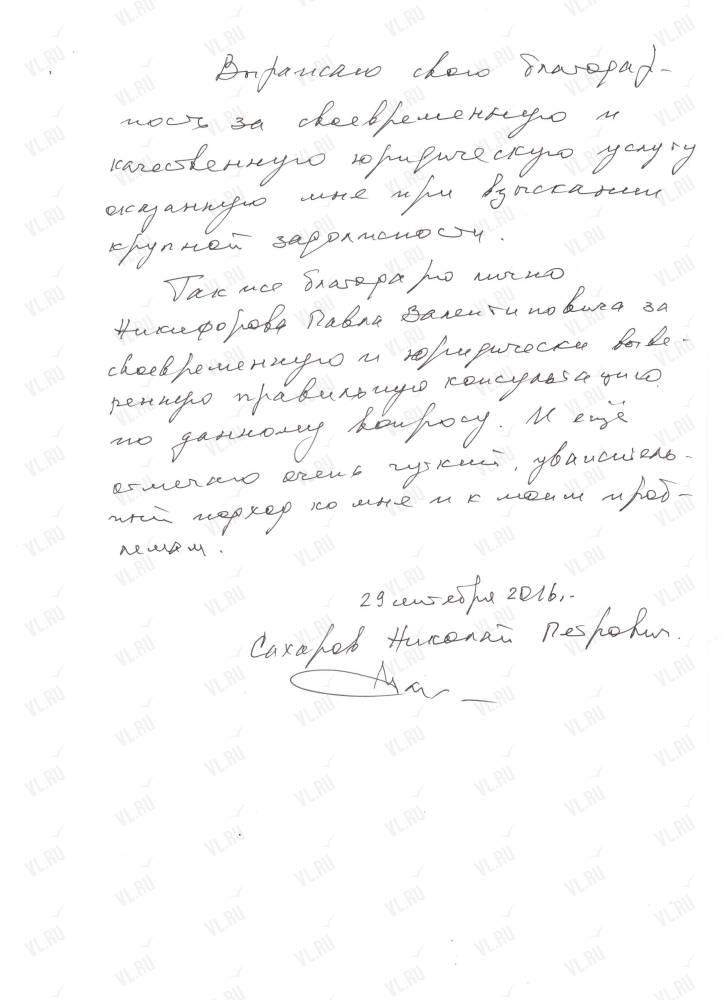 Выражаю свою благодар-
ность за своевременную и
качественную юридическую услугу
оказанную мне при взыскании
крупной задолжности.
Также благодарю лично
Никифорова Павла Валентиновича за
своевременную и юридически выве-
ренную правильную консультацию
по данному вопросу. И ещё
отмечаю очень чуткий, уважитель-
ный подход ко мне и к моим проб-
лемам.
29 сентября 2016.-
Сахаров Николай Петрович.
VL.RU